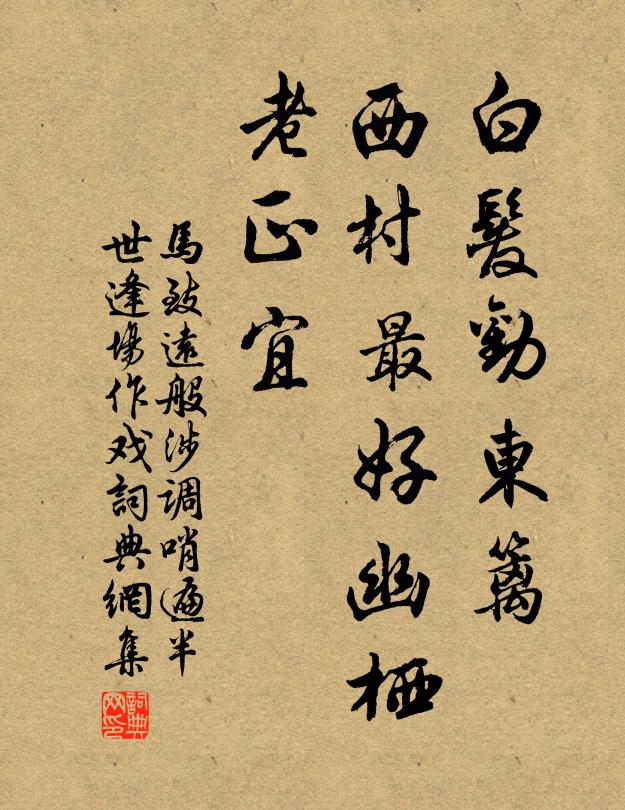 白髮勸東籬
西村最好幽栖
老正宜
馬致遠般涉調哨遍半
世逢場作戏詞典網集
詞典
网印